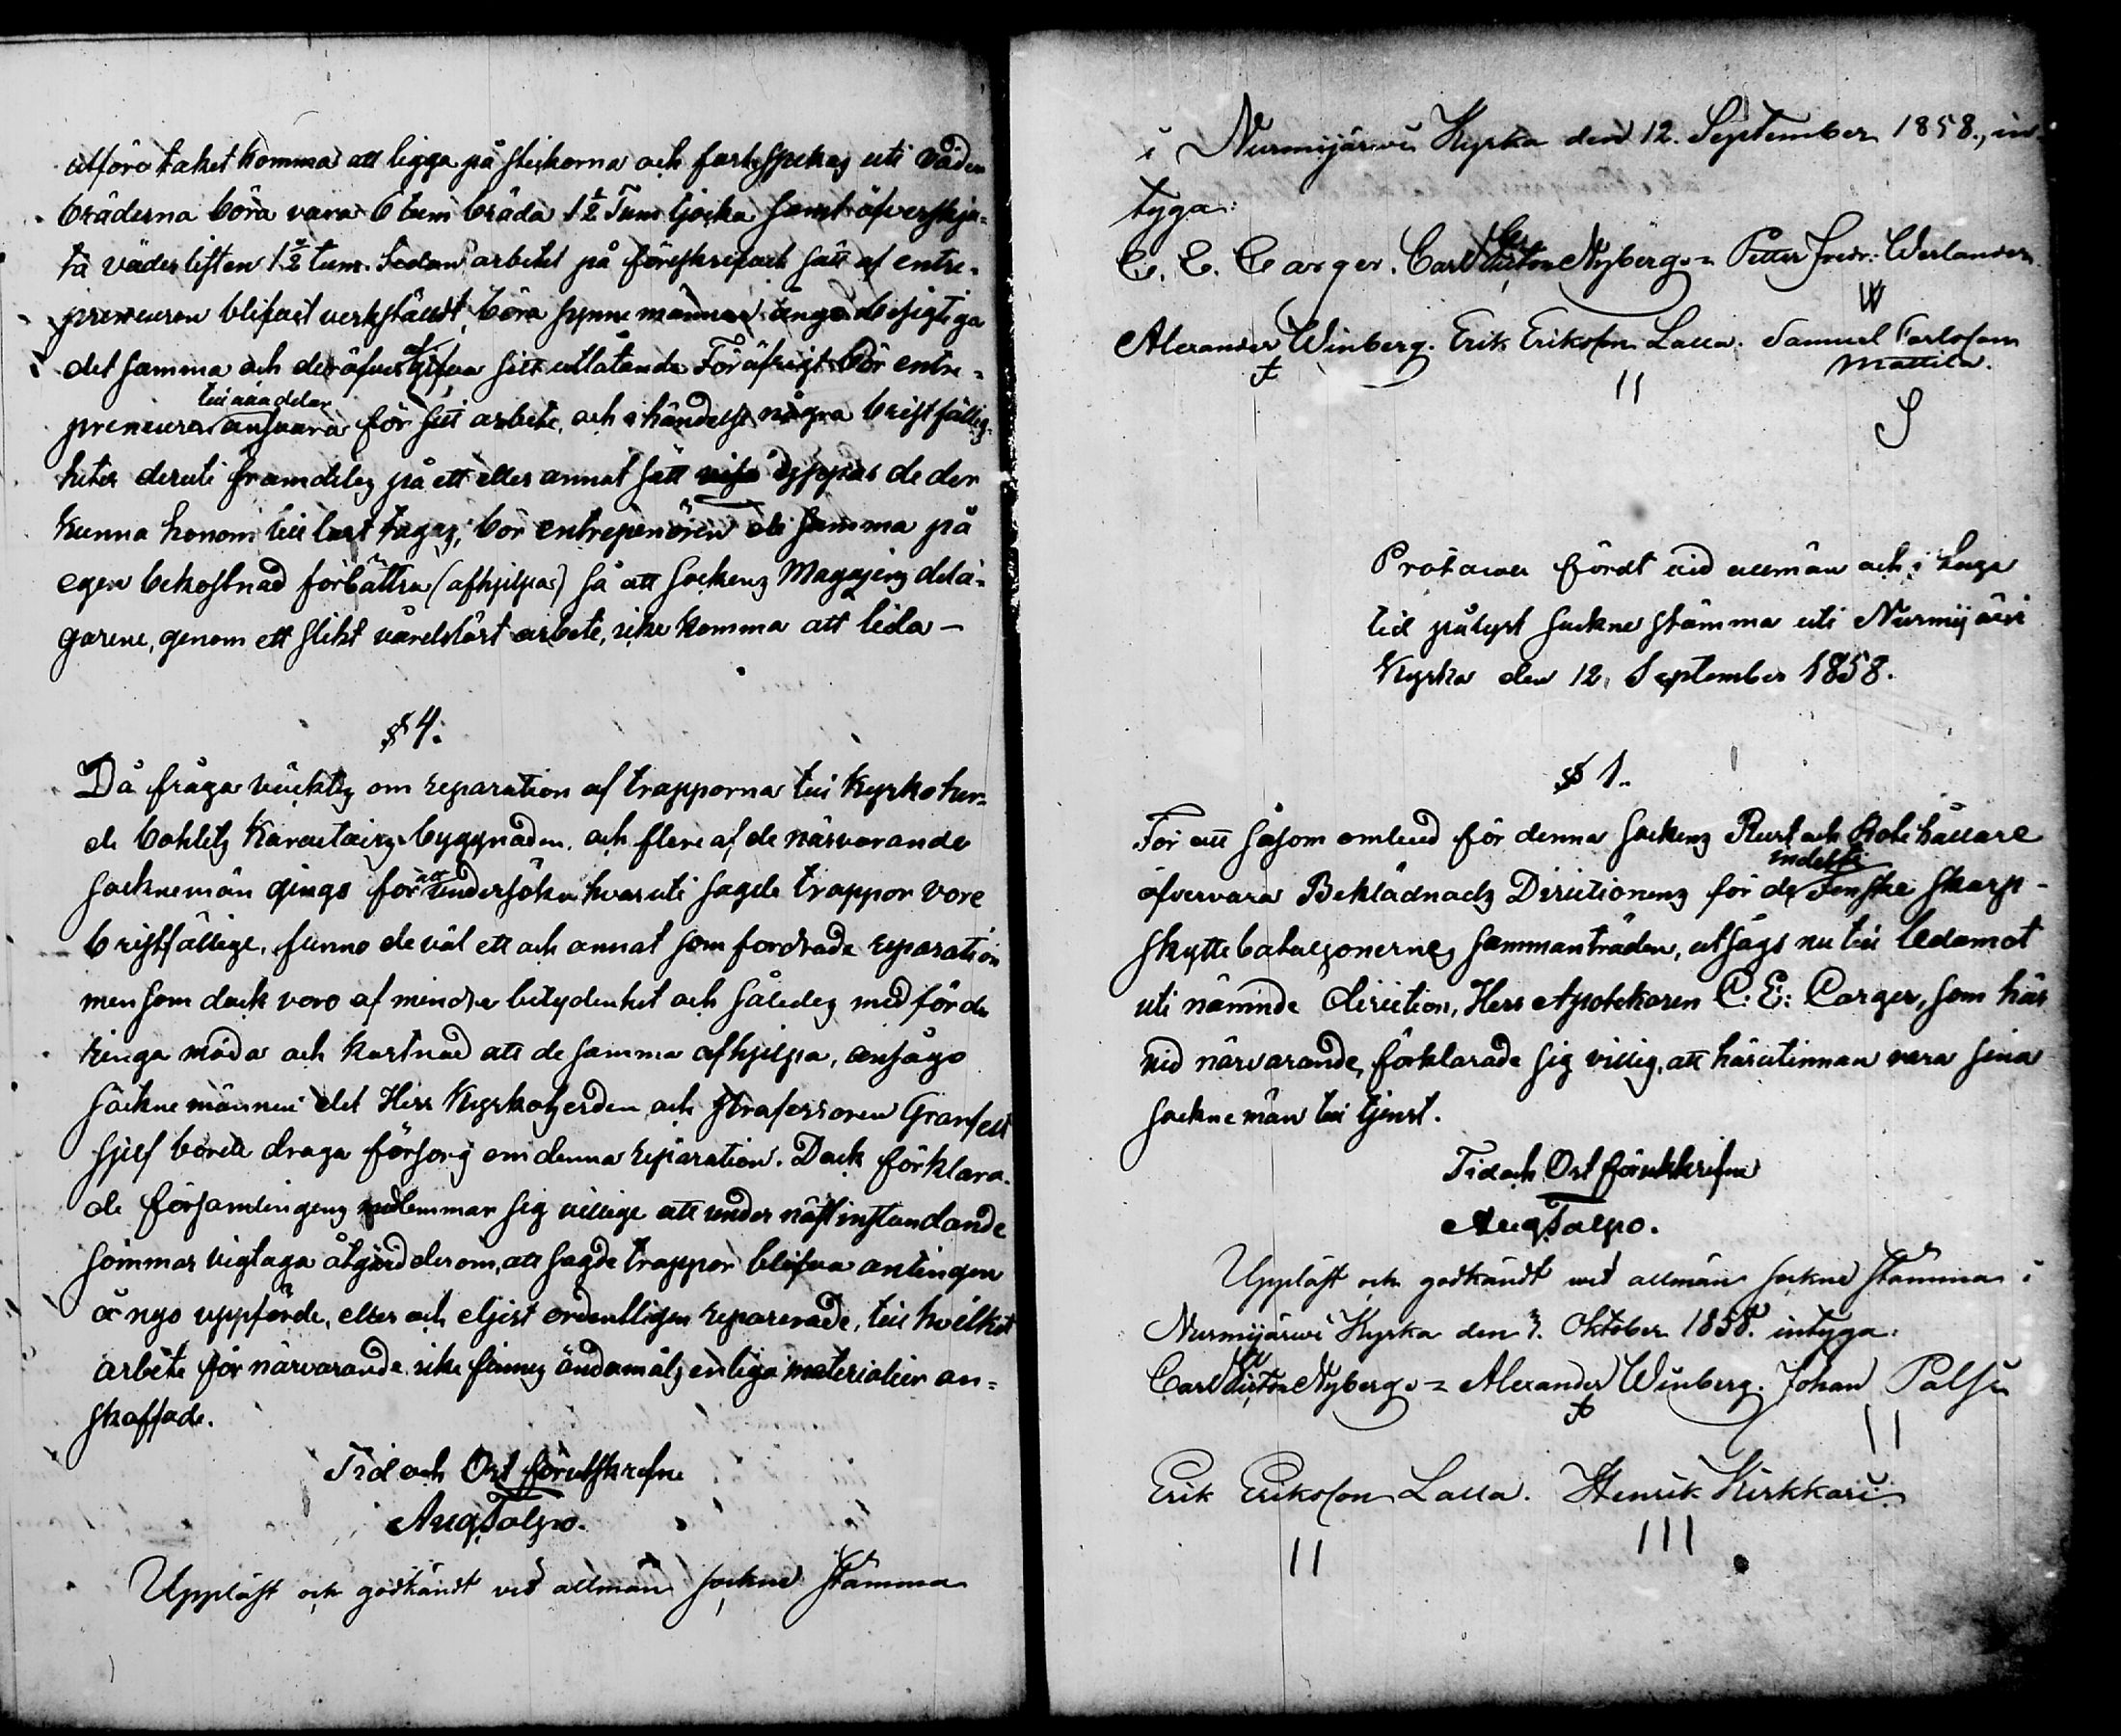 utföre taket komma att ligga på stickorna och fastspikas uti väder
bräderna böra vara 6 tum breda 1½ Tum tjocka samt öfverskju-
ta väderlisten 1½ tum. Sedan arbetet på föreskrifvet sätt af entre-
preneuren blifvit verkstäldt, böra synnemännen ånyo besigtiga
det samma och deröfver afgifva sitt utlåtande. För öfrigt bör entre-
preneuren till alla delar ansvara för sitt arbete, och i händelse några bristfällig-
heter deruti framdeles på ett eller annat sätt yppas de der
kunna honom till last tagas, bör entrepenören de samma på
egen bekostnad förbättra (afhjelpas) så att Sockens Magasins delä-
garene, genom ett slikt vårdslöst arbete, icke komma att lida —
§ 4.
Då fråga väcktes om reparation af trapporna till Kyrkoher-
de bohlets Karactairs byggnaden, och flere af de närvarande
Socknemän gingo för att undersöka hvaruti sagde trappor vore
bristfällige, funno de väl ett och annat som fordrade reparation
men som dock voro af mindre betydenhet och således medförde
ringa möda och kostnad att de samma afhjelpa, ansågo
Socknemännen det Herr Kyrkoherden och Professoren Granfelt
sjelf borde draga försorg om denna reparation. Dock förklara-
de församlingens medlemmar sig villige att under näst instundande
sommar vigtaga åtgärd derom, att sagde trappor blifva antingen
å nyo uppförde, eller och eljest ordentligen reparerade, till hvilket
arbete för närvarande icke finnes ändamåls enliga materialier an-
skaffade.
Tid och Ort förutskrefne
Aug Talpo.
Uppläst och godkändt vid allmän Sockne Stämma
i Nurmijärvi Kyrka den 12. September 1858., in-
tyga:
C. E. Carger. Carl Nyberg Petter Fredr: Werlander
W
Alexander Winberg. Erik Eriksson Lalla. Samuel Carlsson
Mattila.
Protocoll fördt vid allmän och i Laga
tid pålyst Sockne stämma uti Nurmijärvi
Kyrka den 12. September 1858.
§ 1.
För att såsom ombud för denna Sockens Rust och Rotehållare
öfvervara Beklädnads Directionens för de indelta Finska Skarp-
skyttebataljonernes sammanträden, utsågs nu till ledamot
uti nämnde direction, Herr Apothekaren C: E: Carger, som här
vid närvarande, förklarade sig villig, att härutinnan vara sina
Socknemän till tjenst.
Tid och Ort förutskrefne
Aug Talpo.
Uppläst och godkändt vid allmän Sockne Stämma i
Nurmijärvi Kyrka den 3. Oktober 1858. intyga:
Carl Nyberg Alexander Winberg. Johan Palsi
Erik Eriksson Lalla. Henrik Kirkkari